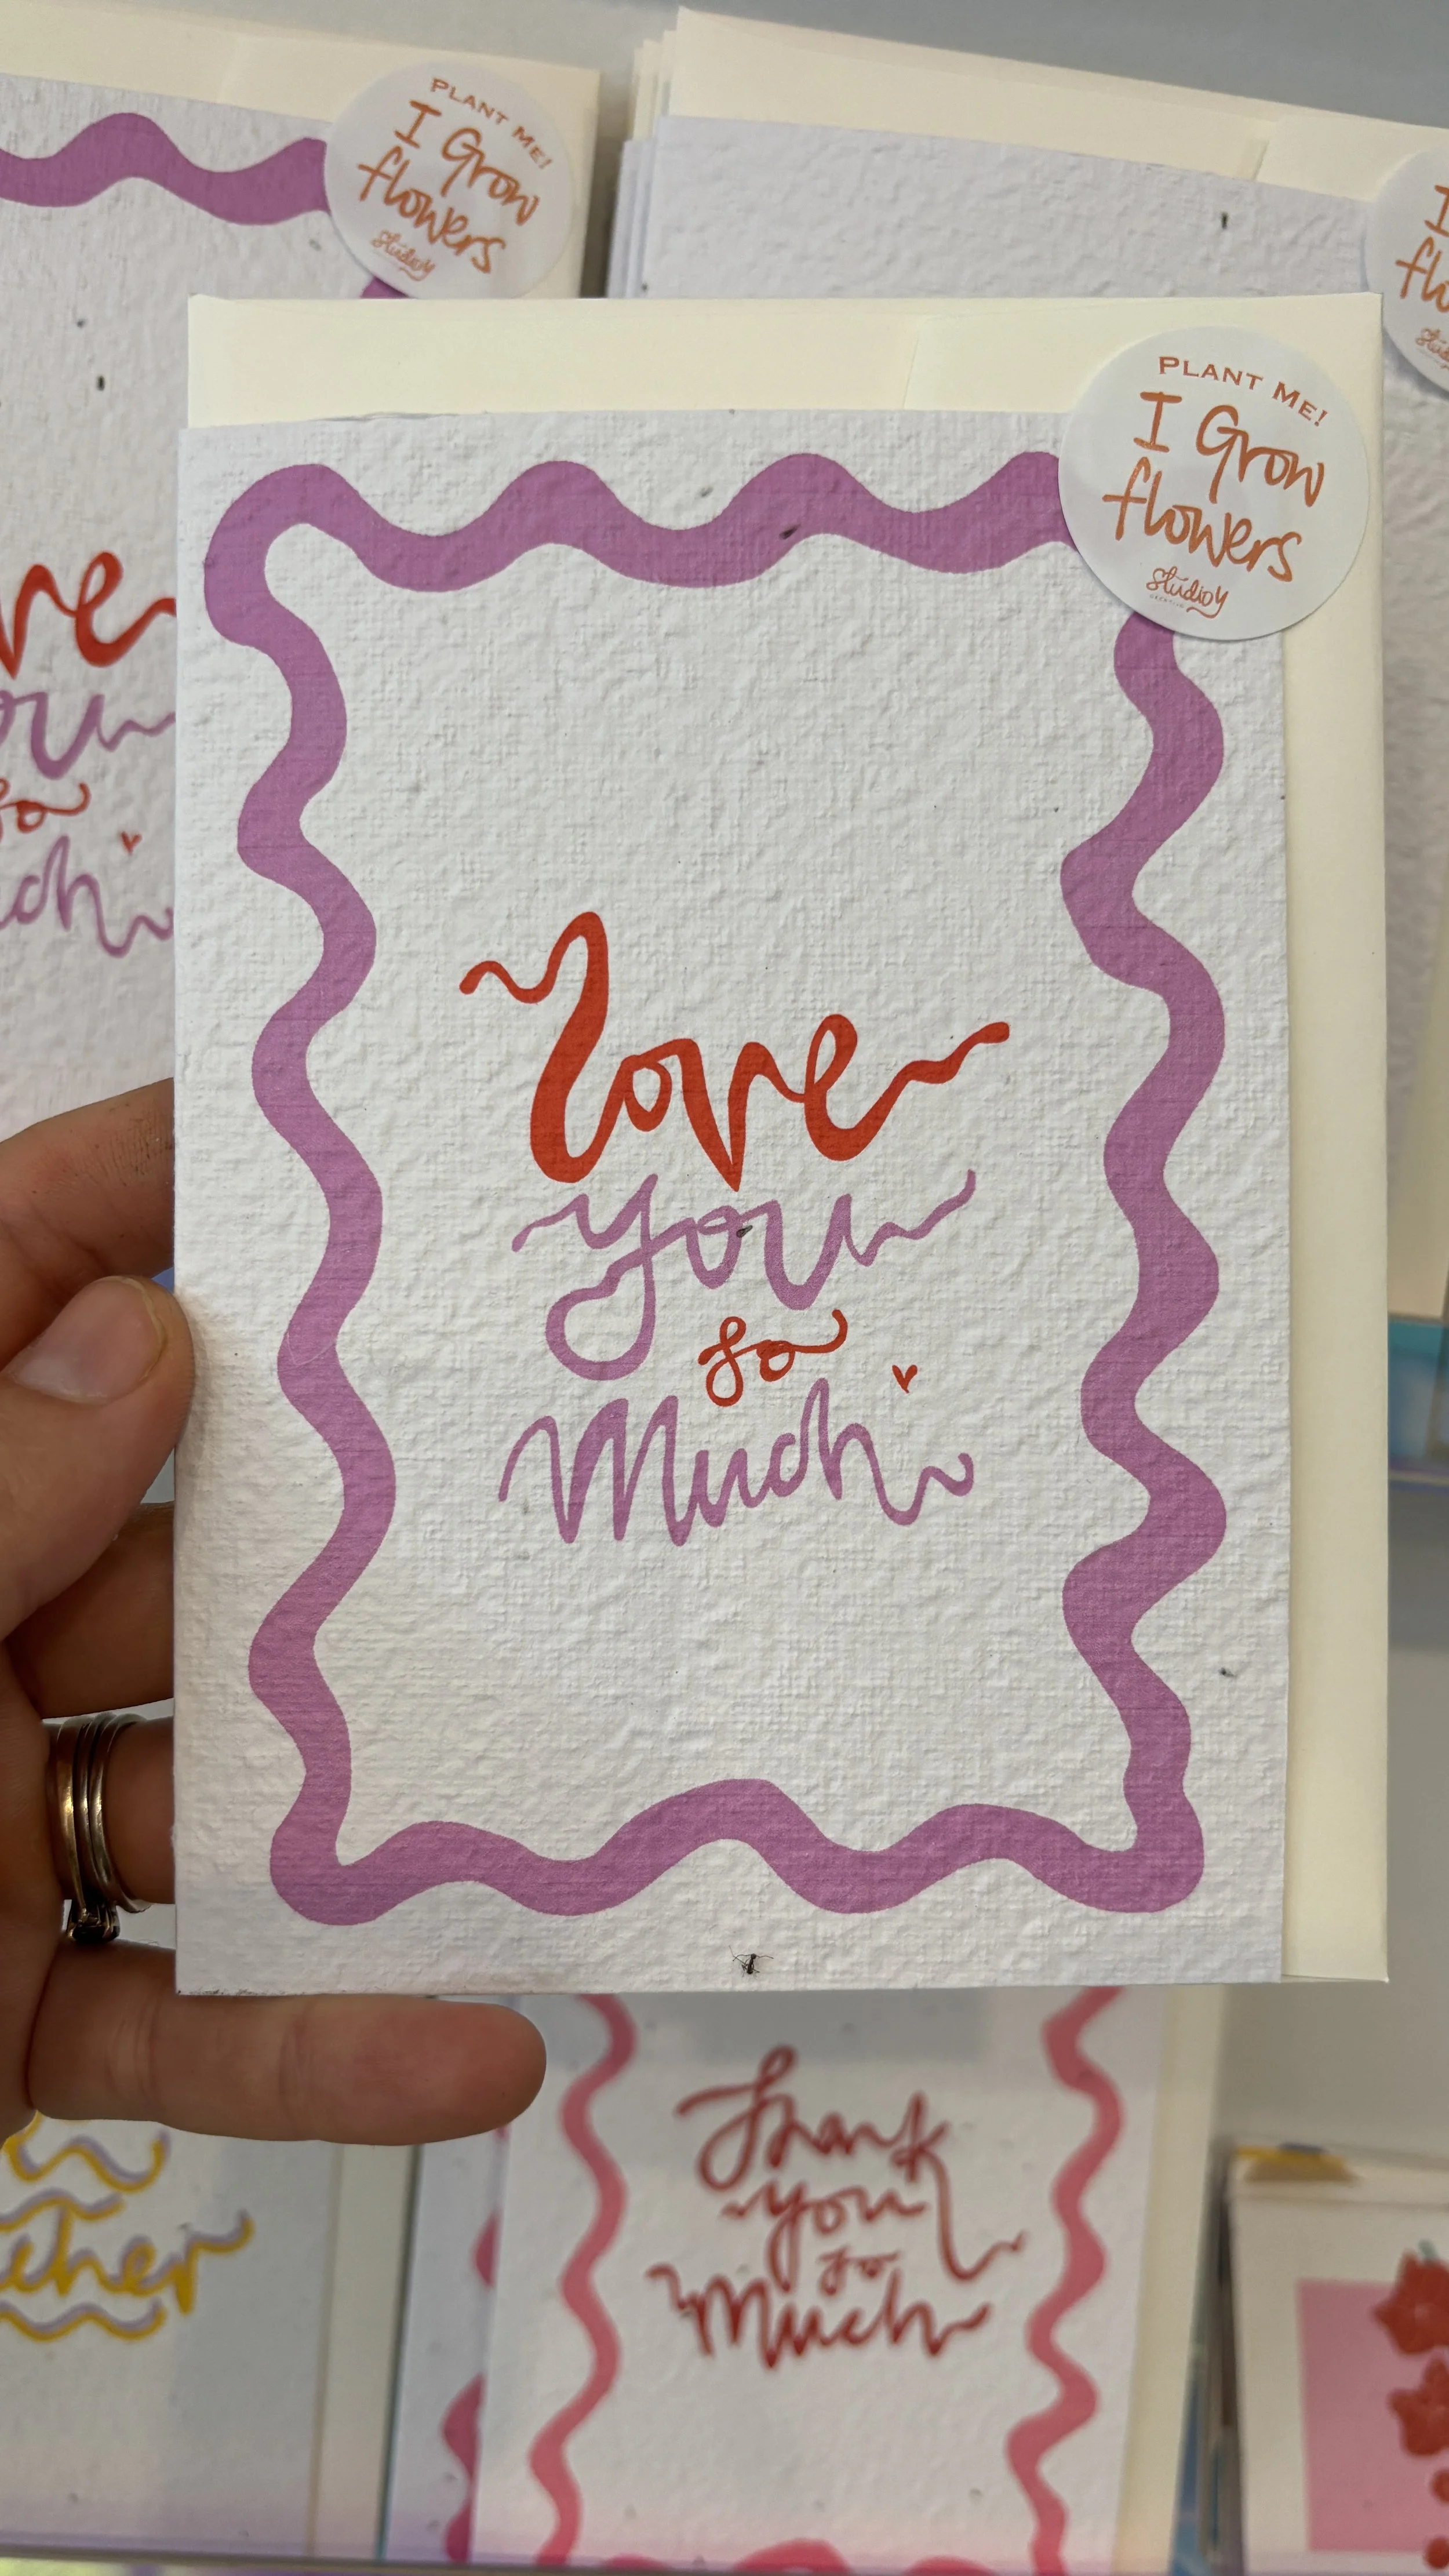 PLANT ME!
I Grow
flowers
Studio Y
PLANT ME!
I Grow
flowers
Studio Y
love
you
so
Much
Thank
you
so
Much